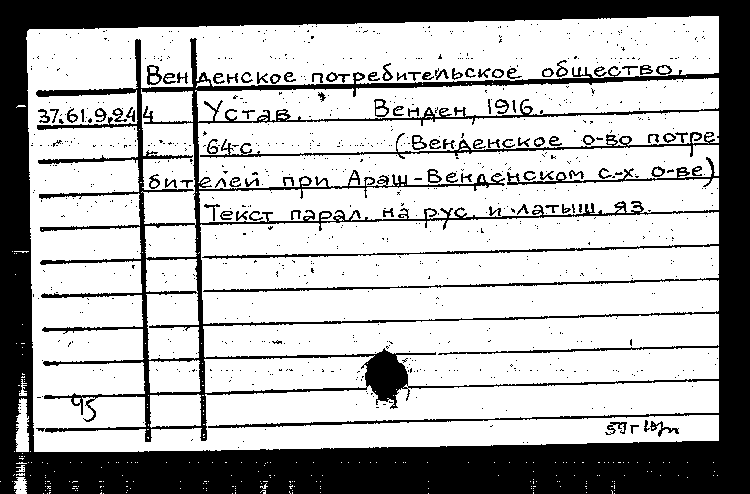 Венденское потребительское общество.
37.61.9.244 Устав. Венден, 1916.
64 с. (Венденское о-во потре-
бителей при Араш-Венденском с.-х. о-ве)
Текст парал. на рус. и латыш. яз.
95
59 г